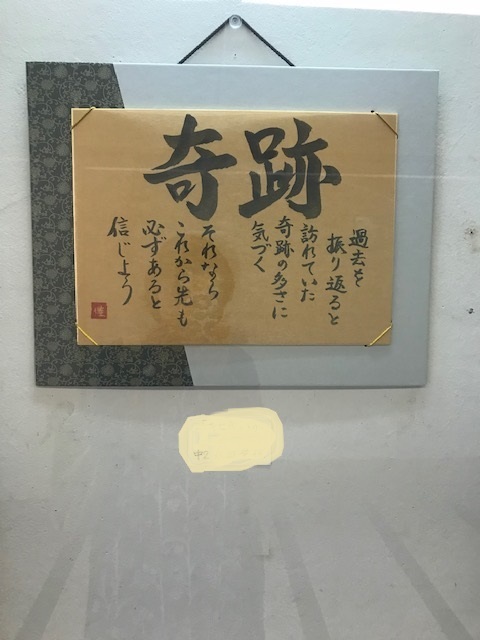 奇跡
過去を
振り返ると
訪れていた
奇跡の多さに
気づく
それなら
これから先も
必ずあると
信じよう
中2